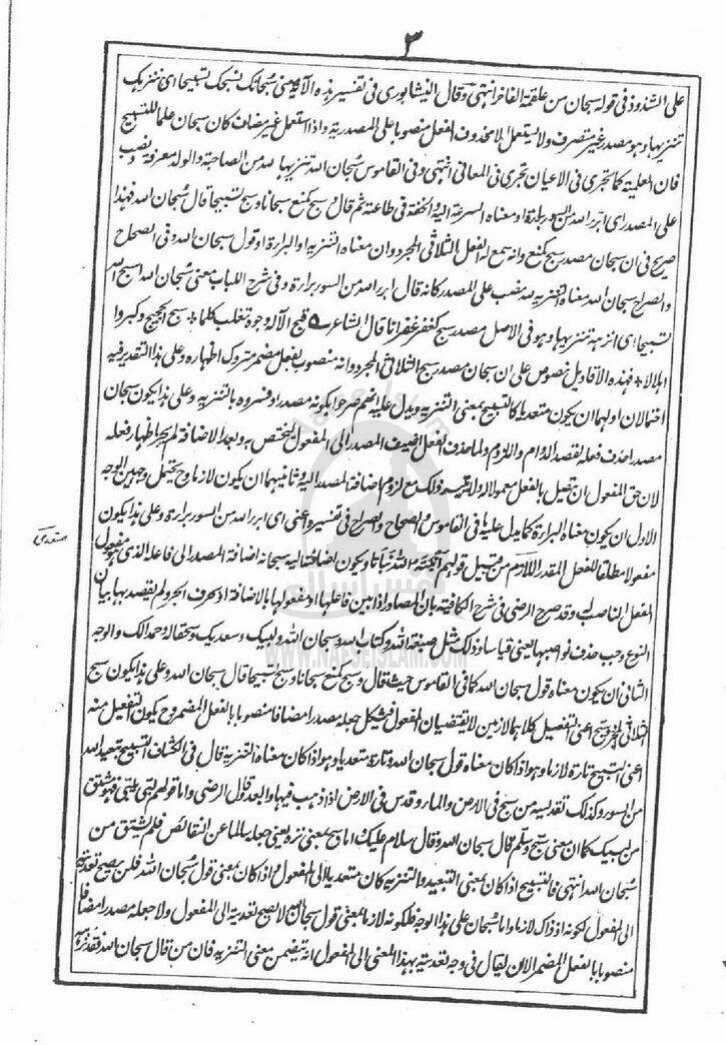 ٣
على الشذوذ فى قوله سبحان من علقمة الفاخر انتهى وقال النيشابورى فى تفسير هذه الآية يعنى سبحانك نسبحك تسبيحا اى ننزهك
تنزيها وهو مصدر غير متصرف ولا يستعمل الا محذوف الفعل منصوبا على المصدرية واذا استعمل غير مضاف كان سبحان علما للتسبيح
فان العلمية كما تجرى فى الاعيان تجرى فى المعانى انتهى وفى القاموس سبحان الله تنزيها لله من الصاحبة والولد معرفة ونصب
على المصدر اى ابرئ الله من السوء براءة او معناه السرعة اليه والخفة فى طاعته ثم قال وسبح كمنع سبحانا وسبح تسبيحا قال سبحان الله فهذا
صريح فى ان سبحان مصدر سبح كمنع وانه سمع له الفعل الثلاثى المجرد وان معناه التنزيه او البراءة او قول سبحان الله وفى الصحاح
والصراح سبحان الله معناه التنزيه لله نصب على المصدر كانه قال ابرئ الله من السوء براءة وفى شرح اللباب معنى سبحان الله اسبح الله
تسبيحا اى انزهه تنزيها وهو فى الاصل مصدر سبح كغفر غفرانا قال الشاعر ؎ قبح الاله وجوه تغلب كلما ✦ سبح الحجيج وكبروا
اهلالا ✦ فهذه الاقاويل نصوص على ان سبحان مصدر سبح الثلاثى المجرد وانه منصوب بفعل مضمر متروك اظهاره وعلى هذا التقدير فيه
احتمالان اولهما ان يكون متعديا كالتسبيح بمعنى التنزيه ويدل عليه انهم صرحوا بكونه مصدرا وفسروه بالتنزيه وعلى هذا يكون سبحان
مصدرا حذف فعله لقصد الدوام واللزوم ولما حذف الفعل اضيف المصدر الى المفعول ليختص به وبعد الاضافة لم يجز اظهار فعله
لان حق المفعول ان يتصل بالفعل معمولا له ولا يتيسر ذلك مع لزوم اضافة المصدر اليه وثانيهما ان يكون لازما وح يحتمل وجهين الوجه
الاول ان يكون معناه البراءة كما يدل عليه ما فى القاموس والصحاح والصراح فى تفسيره اعنى اى ابرئ الله من السوء براءة وعلى هذا يكون
مفعولا مطلقا للفعل المقدر اللازم من قبيل قولهم انبته الله نباتا ويكون اضافته اليه سبحانه اضافة المصدر الى فاعله الذى هو مفعول
الفعل الناصب له وقد صرح الرضى فى شرح الكافية بان المصادر اذا بين فاعلها او مفعولها بالاضافة او بحرف الجر ولم يقصد بها بيان
النوع وجب حذف نواصبها يعنى قياسا وذلك مثل صبغة الله وكتاب الله وسبحان الله ولبيك وسعديك وسحقا له وحمدا لك والوجه
الثانى ان يكون معناه قول سبحان الله كما فى القاموس حيث قال وسبح كمنع سبحانا وسبح تسبيحا قال سبحان الله وعلى هذا يكون سبح
الثلاثى وسبح اعنى التفعيل كلاهما لازمين لا يقتضيان المفعول فيشكل جعله مصدرا مضافا منصوبا بالفعل المضمر وح يكون التفعيل منه
اعنى التسبيح تارة لازما وهو اذا كان معناه قول سبحان الله وتارة متعديا وهو اذا كان معناه التنزيه قال فى الكشاف التسبيح تبعيد الله
من السوء وكذلك تقديسه من سبح فى الارض والماء وقدس فى الارض اذا ذهب فيها وابعد قال الرضى واما قولهم لبى يلبى فهو مشتق
من لبيك كما ان معنى سبح وسلم قال سبحان الله وقال سلام عليك اما سبح بمعنى نزه يعنى جعله سالما عن النقائص فلم يشتق من
سبحان الله انتهى فالتسبيح اذا كان بمعنى التبعيد والتنزيه كان متعديا الى المفعول واذا كان بمعنى قول سبحان الله فلن يصح تعديته
الى المفعول لكونه اذ ذاك لازما واما سبحان على هذا الوجه فلكونه لازما بمعنى قول سبحان الله لا يصح تعديته الى المفعول ولا جعله مصدرا مضافا
منصوبا بالفعل المضمر الا ان يقال فى وجه تعديته بهذا المعنى الى المفعول انه يتضمن معنى التنزيه فان من قال سبحان الله فقد نزهه
نفس اسلام
WWW.NAFSEISLAM.COM